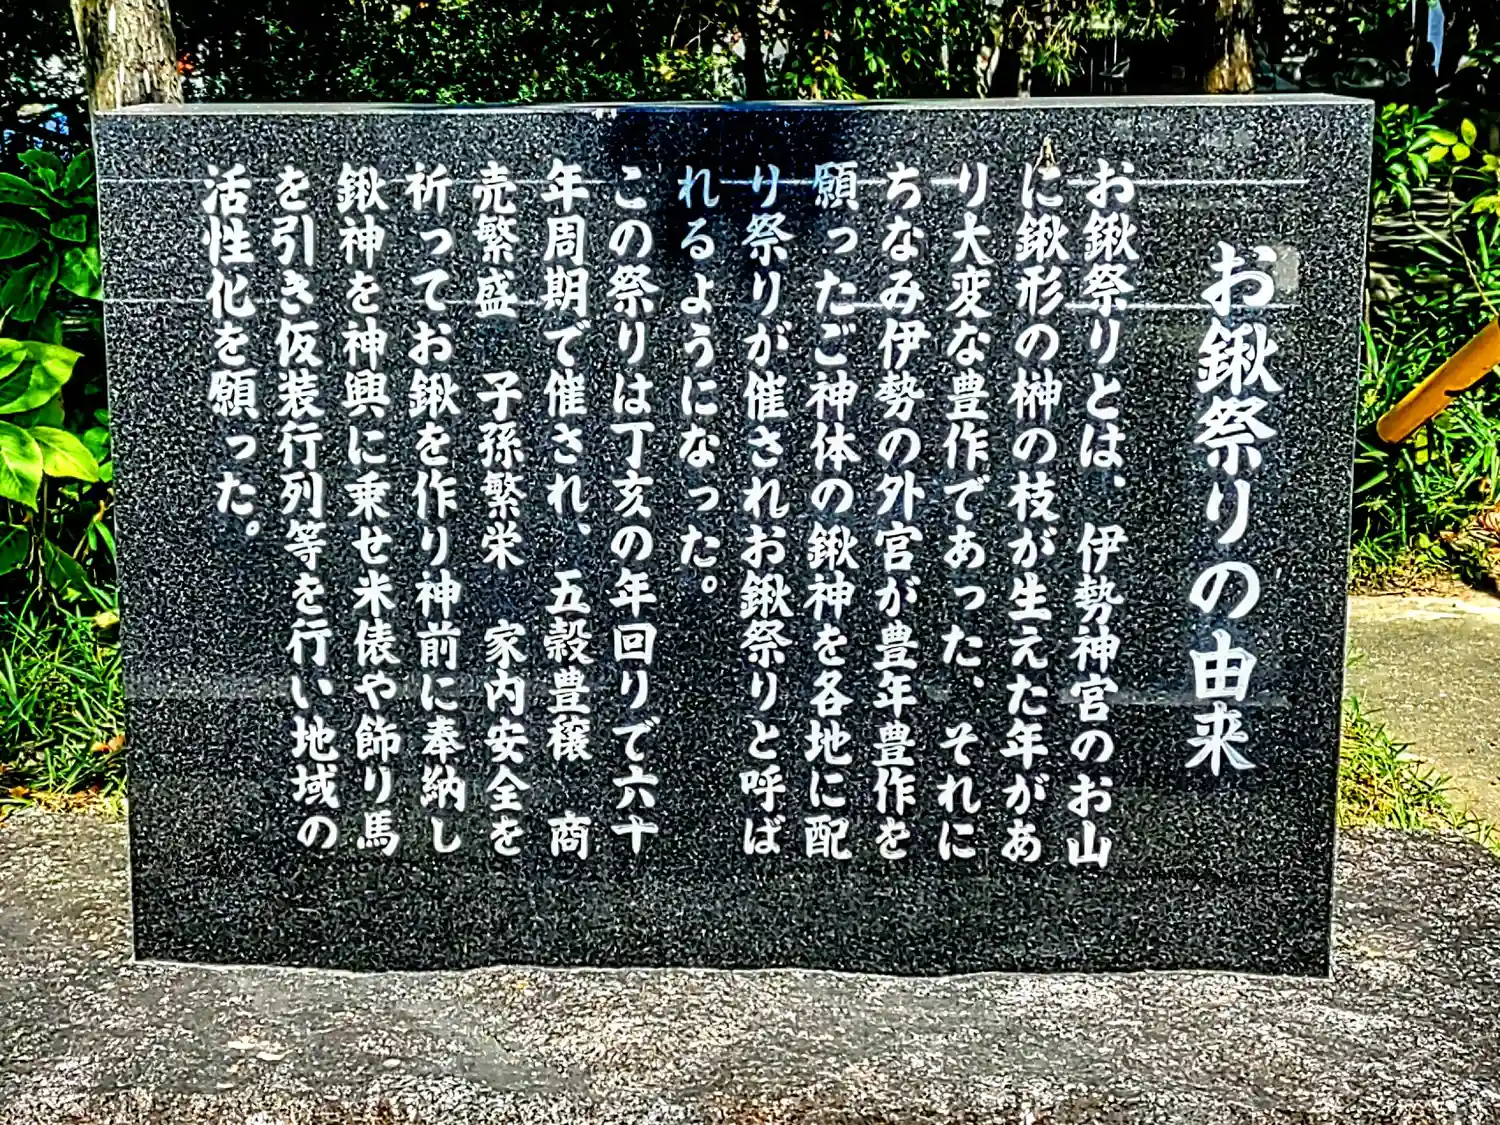 お鍬祭りの由来
お鍬祭りとは、伊勢神宮のお山
に鍬形の榊の枝が生えた年があ
り大変な豊作であった、それに
ちなみ伊勢の外宮が豊年豊作を
願ったご神体の鍬神を各地に配
り祭りが催されお鍬祭りと呼ば
れるようになった。
この祭りは丁亥の年回りで六十
年周期で催され、五穀豊穣　商
売繁盛　子孫繁栄　家内安全を
祈ってお鍬を作り神前に奉納し
鍬神を神輿に乗せ米俵や飾り馬
を引き仮装行列等を行い地域の
活性化を願った。